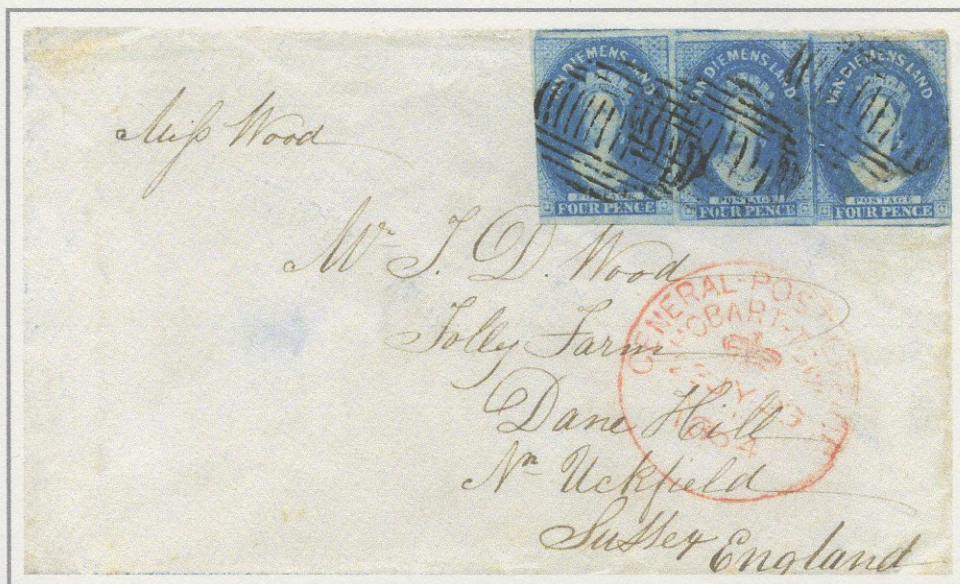 VAN DIEMENS LAND
POSTAGE
FOUR PENCE
VAN DIEMENS LAND
POSTAGE
FOUR PENCE
VAN DIEMENS LAND
POSTAGE
FOUR PENCE
Miss Wood
Mr J. D. Wood
Folly Farm
Dane Hill
Nr Uckfield
Sussex England
GENERAL-POST-OFFICE
HOBART-TOWN
1854